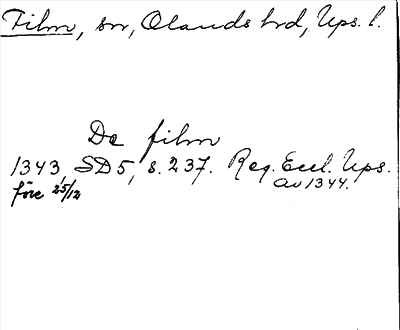 Film, sn, Olands hd, Ups. l.
De film
1343, SD 5, s. 237. Reg. Eccl. Ups.
före 25/12 av 1344.